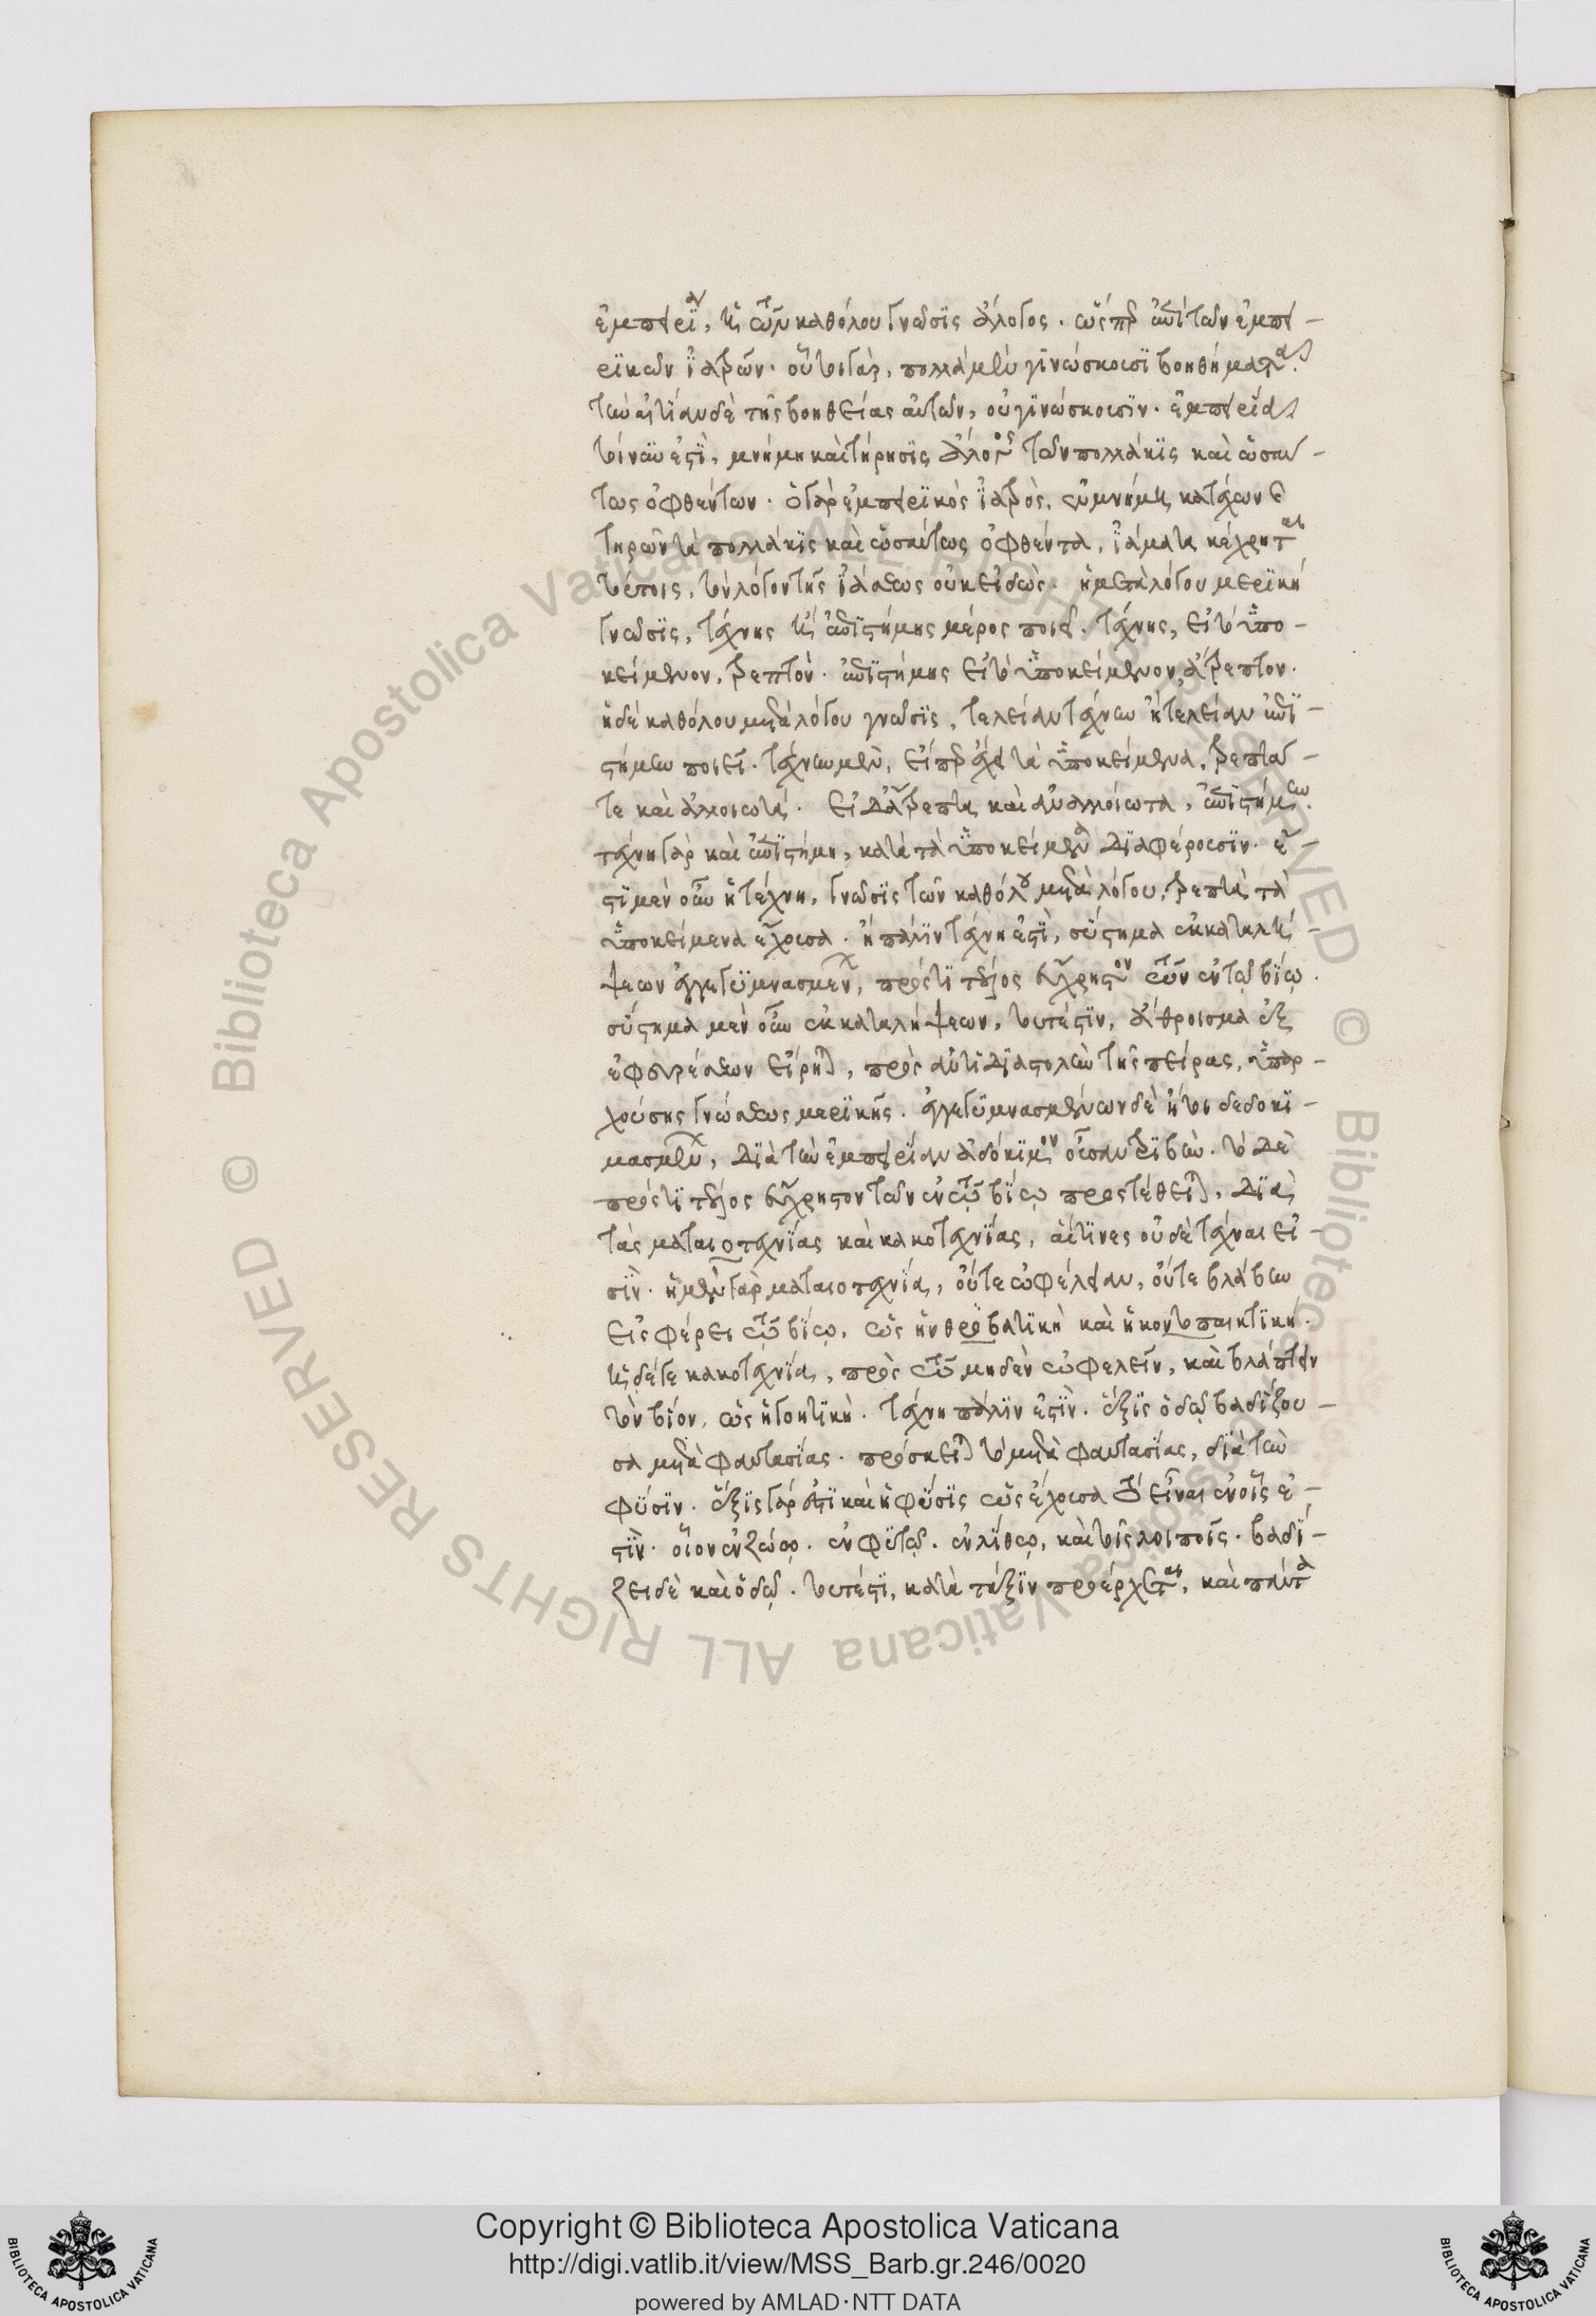 ἐμπειρίαν, ἡ τῶν καθόλου γνῶσις ἄλογος. ὥσπερ ἐπὶ τῶν ἐμπει-
ρικῶν ἰατρῶν. οὗτοι γὰρ, πολλὰ μὲν γινώσκουσι βοηθήματα.
τὴν αἰτίαν δὲ τῆς βοηθείας αὐτῶν, οὐ γινώσκουσιν. ἐμπειρία
τοίνυν ἐστὶ, μνήμη καὶ τήρησις ἄλογος τῶν πολλάκις καὶ ὡσαύ-
τως ὀφθέντων. ὁ γὰρ ἐμπειρικὸς ἰατρὸς, ἐν μνήμῃ κατέχων καὶ
τηρῶν τὰ πολλάκις καὶ ὡσαύτως ὀφθέντα, ἰάματα κέχρηται
τούτοις, τὸν λόγον τῆς ἰάσεως οὐκ εἰδώς. ἡ μετὰ λόγου μερικὴ
γνῶσις, τέχνης ἢ ἐπιστήμης μέρος ποιεῖ. τέχνης, εἰ τὸ ὑπο-
κείμενον, ῥεπτόν. ἐπιστήμης εἰ τὸ ὑποκείμενον, ἄρεπτον.
ἡ δὲ καθόλου μετὰ λόγου γνῶσις, τελείαν τέχνην ἢ τελείαν ἐπι-
στήμην ποιεῖ. τέχνην μὲν, εἴπερ ἔχει τὰ ὑποκείμενα, ῥεπτά
τε καὶ ἀλλοιωτά. εἰ δ' ἄρεπτα καὶ ἀναλλοίωτα, ἐπιστήμην.
τέχνη γὰρ καὶ ἐπιστήμη, κατὰ τὰ ὑποκείμενα διαφέρουσιν. ἔ-
στι μὲν οὖν ἡ τέχνη, γνῶσις τῶν καθόλου μετὰ λόγου, ῥεπτὰ τὰ
ὑποκείμενα ἔχουσα. ἡ πάλιν τέχνη ἐστὶ, σύστημα ἐκ καταλή-
ψεων ἐγγεγυμνασμένων, πρός τι τέλος εὔχρηστον τῶν ἐν τῷ βίῳ.
σύστημα μὲν οὖν ἐκ καταλήψεων, τουτέστιν, ἄθροισμα ἐξ
ἐφευρέσεων εἴρηται, πρὸς ἀντιδιαστολὴν τῆς πείρας, ὑπαρ-
χούσης γνώσεως μερικῆς. ἐγγεγυμνασμένων δὲ ἤτοι δεδοκι-
μασμένων, διὰ τὴν ἐμπειρίαν ἀδόκιμον οὖσαν τριβήν. τὸ δὲ
πρός τι τέλος εὔχρηστον τῶν ἐν τῷ βίῳ προστέθειται, διὰ
τὰς ματαιοτεχνίας καὶ κακοτεχνίας, αἵτινες οὐδὲ τέχναι εἰ-
σίν. ἡ μὲν γὰρ ματαιοτεχνία, οὔτε ὠφέλειαν, οὔτε βλάβην
εἰσφέρει τῷ βίῳ, ὡς ἡ νθροβατικὴ καὶ ἡ κοντοπαικτική.
ἡ δέ γε κακοτεχνία, πρὸς τῷ μηδὲν ὠφελεῖν, καὶ βλάπτει
τὸν βίον, ὡς ἡ γοητική. τέχνη πάλιν ἐστὶν. ἕξις ὁδῷ βαδίζου-
σα μετὰ φαντασίας. πρόσκειται τὸ μετὰ φαντασίας, διὰ τὴν
φύσιν. ἕξις γάρ ἐστι καὶ ἡ φύσις ὡς ἔχουσα τὸ εἶναι ἐν οἷς ἐ-
στίν. οἷον ἐν ζώῳ. ἐν φυτῷ. ἐν λίθῳ, καὶ τοῖς λοιποῖς. βαδί-
ζει δὲ καὶ ὁδῷ. τουτέστι, κατὰ τάξιν προέρχεται, καὶ πάντα
Copyright © Biblioteca Apostolica Vaticana
http://digi.vatlib.it/view/MSS_Barb.gr.246/0020
powered by AMLAD·NTT DATA